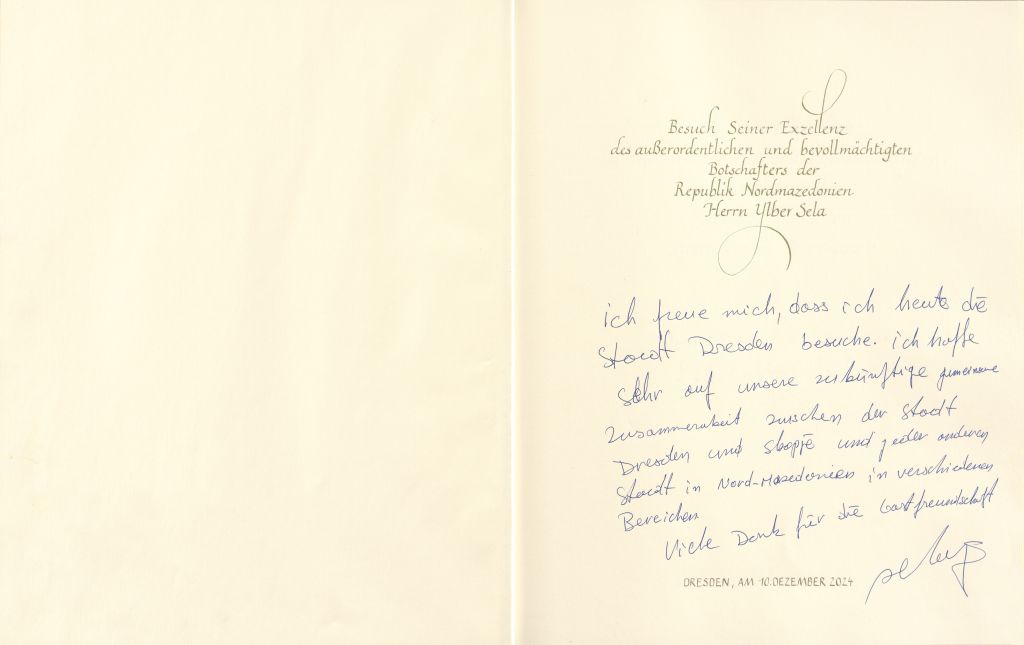 Besuch Seiner Exzellenz
des außerordentlichen und bevollmächtigten
Botschafters der
Republik Nordmazedonien
Herrn Ylber Sela
ich freue mich, dass ich heute die
Stadt Dresden besuche. ich hoffe
sehr auf unsere zukünftige gemeinsame
Zusammenarbeit zwischen der Stadt
Dresden und Skopje und jeder anderen
Stadt in Nord-Mazedonien in verschiedenen
Bereichen
Viele Dank für die Gastfreundschaft
DRESDEN, AM 10. DEZEMBER 2024